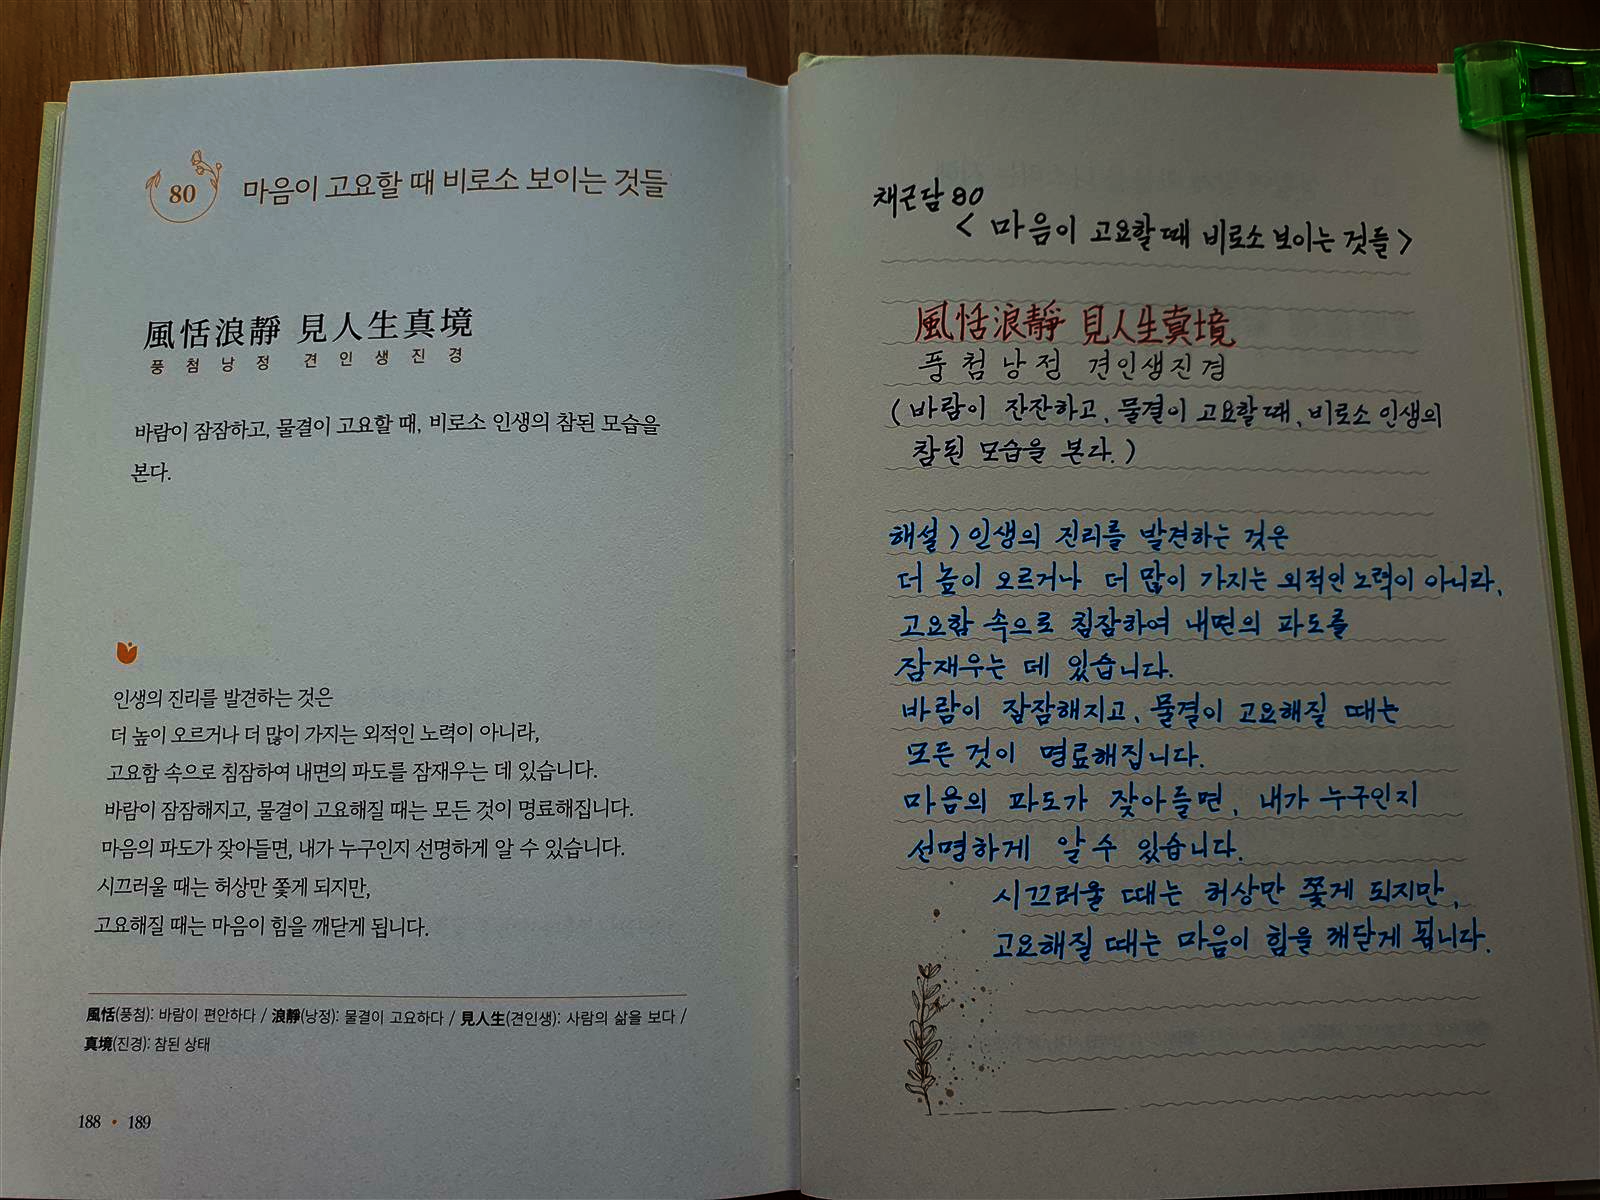 80 마음이 고요할 때 비로소 보이는 것들
風恬浪靜 見人生真境
풍 첨 낭 정 견 인 생 진 경
바람이 잠잠하고, 물결이 고요할 때, 비로소 인생의 참된 모습을
본다.
인생의 진리를 발견하는 것은
더 높이 오르거나 더 많이 가지는 외적인 노력이 아니라,
고요함 속으로 침잠하여 내면의 파도를 잠재우는 데 있습니다.
바람이 잠잠해지고, 물결이 고요해질 때는 모든 것이 명료해집니다.
마음의 파도가 잦아들면, 내가 누구인지 선명하게 알 수 있습니다.
시끄러울 때는 허상만 쫓게 되지만,
고요해질 때는 마음이 힘을 깨닫게 됩니다.
風恬(풍첨): 바람이 편안하다 / 浪靜(낭정): 물결이 고요하다 / 見人生(견인생): 사람의 삶을 보다 /
真境(진경): 참된 상태
188 • 189
채근담 80
< 마음이 고요할 때 비로소 보이는 것들 >
風恬浪靜 見人生真境
풍 첨 낭 정 견인생진경
( 바람이 잔잔하고, 물결이 고요할 때, 비로소 인생의
참된 모습을 본다. )
해설 ) 인생의 진리를 발견하는 것은
더 높이 오르거나 더 많이 가지는 외적인 노력이 아니라,
고요함 속으로 침잠하여 내면의 파도를
잠재우는 데 있습니다.
바람이 잠잠해지고, 물결이 고요해질 때는
모든 것이 명료해집니다.
마음의 파도가 잦아들면, 내가 누구인지
선명하게 알 수 있습니다.
시끄러울 때는 허상만 쫓게 되지만,
고요해질 때는 마음이 힘을 깨닫게 됩니다.